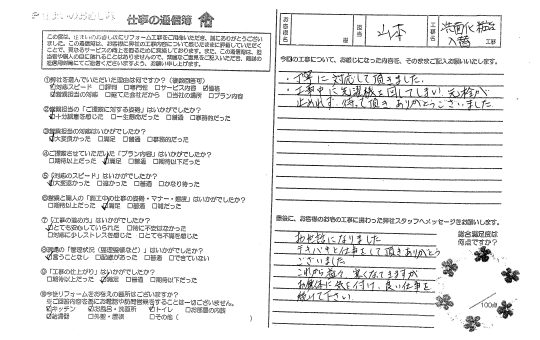 仕事の通信簿
この度は、住まいのお直し人にリフォーム工事をご用命いただき、誠にありがとうございました。
①弊社を選んでいただいた理由は何ですか?(複数回答可)
対応スピード □評判 □専門性 □サービス内容 価格
営業担当の対応 □建てた会社だから □当社の場所 □プラン内容
②営業担当の「ご提案に対する姿勢」はいかがでしたか?
十分誠意を感じた □一生懸命だった □普通 □事務的だった
③営業担当の対応はいかがでしたか?
大変良かった □満足 □普通 □事務的だった
④ご提案させていただいた「プラン内容」はいかがでしたか?
□期待以上だった 満足 □普通 □期待以下だった
⑤「対応のスピード」はいかがでしたか?
大変速かった □速かった □普通 □かなり待った
⑥営業と職人の「施工中の仕事の姿勢・マナー・態度」はいかがでしたか?
□期待以上だった 満足 □普通 □雑だった
⑦「工事の進め方」はいかがでしたか?
とても安心していられた □特に不安はなかった
□少々ストレスを感じた □とても不満を感じた
⑧現場の「管理状況(整理整頓など)」はいかがでしたか?
言うことなし □配慮があった □できていない
⑨「工事の仕上がり」はいかがでしたか?
□期待以上だった 満足 □普通 □期待以下だった
⑩今後リフォームをお考えの箇所はございますか?
キッチン お風呂・洗面所 トイレ □お部屋の内装
給湯器 □外壁・屋根 □その他( )
お客様名
山本
工事名
洗面化粧台
入替
工事
今回の工事について、お感じになった内容を、そのままご記入お願いいたします。
・丁寧に対応して頂きました。
・工事中に洗濯機を回してしまい、元栓が
止めれず、待って頂き ありがとうございました
最後に、お客様のお宅の工事に携わった弊社スタッフへメッセージをお願いします。
お世話になりました
テキパキと仕事をして頂きありがとう
ございました
これから益々、寒くなりますが
お身体に気を付け、良い仕事を
続けて下さい
総合満足度は
何点ですか?
/100点